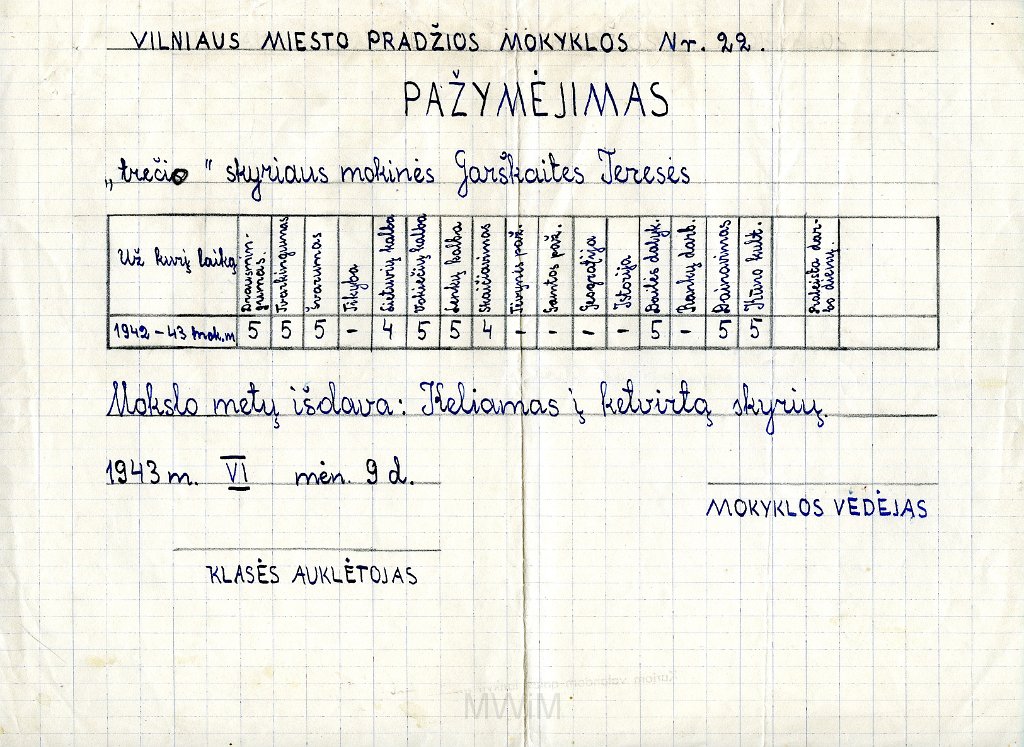 VILNIAUS MIESTO PRADŽIOS MOKYKLOS Nr. 22.
PAŽYMĖJIMAS
„trečio" skyriaus mokinės Garškaites Teresės
Už kurį laiką
Drausmin-
gumas.
Tvarkingumas
Švarumas
Tikyba
Lietuvių kalba
Vokiečių kalba
Lenkų kalba
Skaičiavimas
Tėvynės paž.
Gamtos paž.
Geografija
Istorija
Dailės dalyk.
Rankų darb.
Dainavimas
Kūno kult.
Praleista dar-
bo dienų.
1942 – 43 mok.m 5 5 5 - 4 5 5 4 - - - - 5 - 5 5
Mokslo metų išdava: Keliamas į ketvirtą skyrių.
1943 m. VI mėn. 9 d.
MOKYKLOS VĖDĖJAS
KLASĖS AUKLĖTOJAS
MWiM